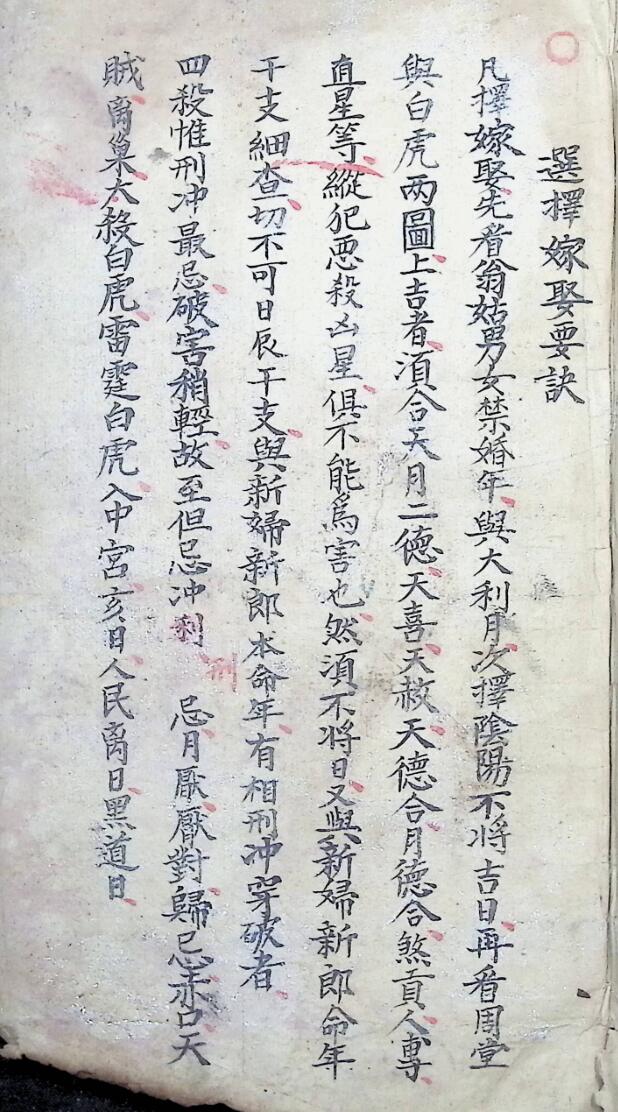 選擇嫁娶要訣
凡擇嫁娶先看翁姑男女禁婚年與大利月次擇陰陽不將吉日再看周堂
與白虎两圖上吉者須合天月二德天喜天赦天德合月德合煞貢人專
直星等縱犯惡殺凶星俱不能為害也然須不將日又與新婦新郎命年
干支細查切不可日辰干支與新婦新郎本命年有相刑冲穿破者
四殺惟刑冲最忌破害稍輕故至但忌冲利 刑 忌月厭厭對歸忌赤口天
賊离巢大殺白虎雷霆白虎入中宮亥日人民离日黑道日